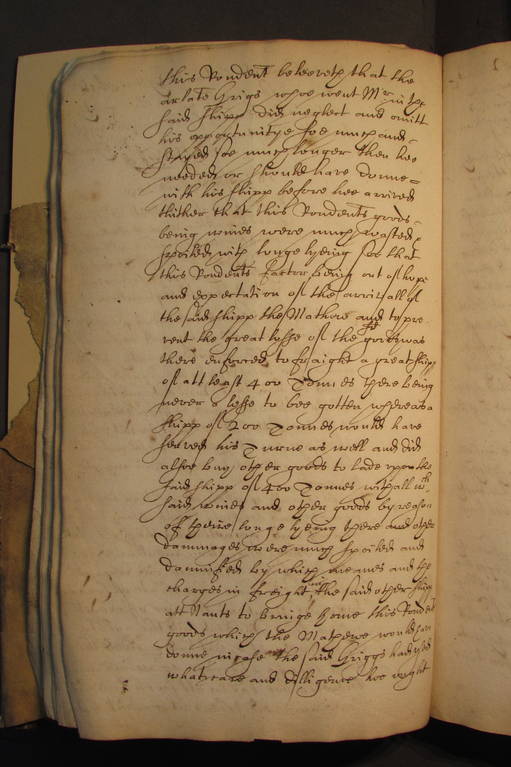 this Rondent beleeveth that the
arlate Grigs whoe went Mr in the
said shipp did neglect and omitt
his opportunitye soe much and
stayed soe much longer then hee
needed or should have donne
with his shipp before hee arrived
thither that this Rondents goods
being wines were much wasted
spoiled with longe lyeing soe that
this Rondents factor being out of hope
and expectation of the arrivall of
the said shipp the Mathewe and to pre
vent the great losse of the goods was
there enforced to fraight a great shipp
of att least 400 Tonnes there being
never a lesse to bee gotten whereas a
shipp of 200 Tonnes would have
served his Turne as well and did
alsoe buy other goods to lade upon the
said shipp of 400 Tonnes withall wch
said wines and other goods by reason
of theire longe lyeing there and other
dammages were much spoiled and
damnified by which meanes and the
charges in freight the said other shipp
att Nants to bringe home this Rondents
goods which the Mathewe would have
donne in case the said Griggs had used
what care and dilligence hee might